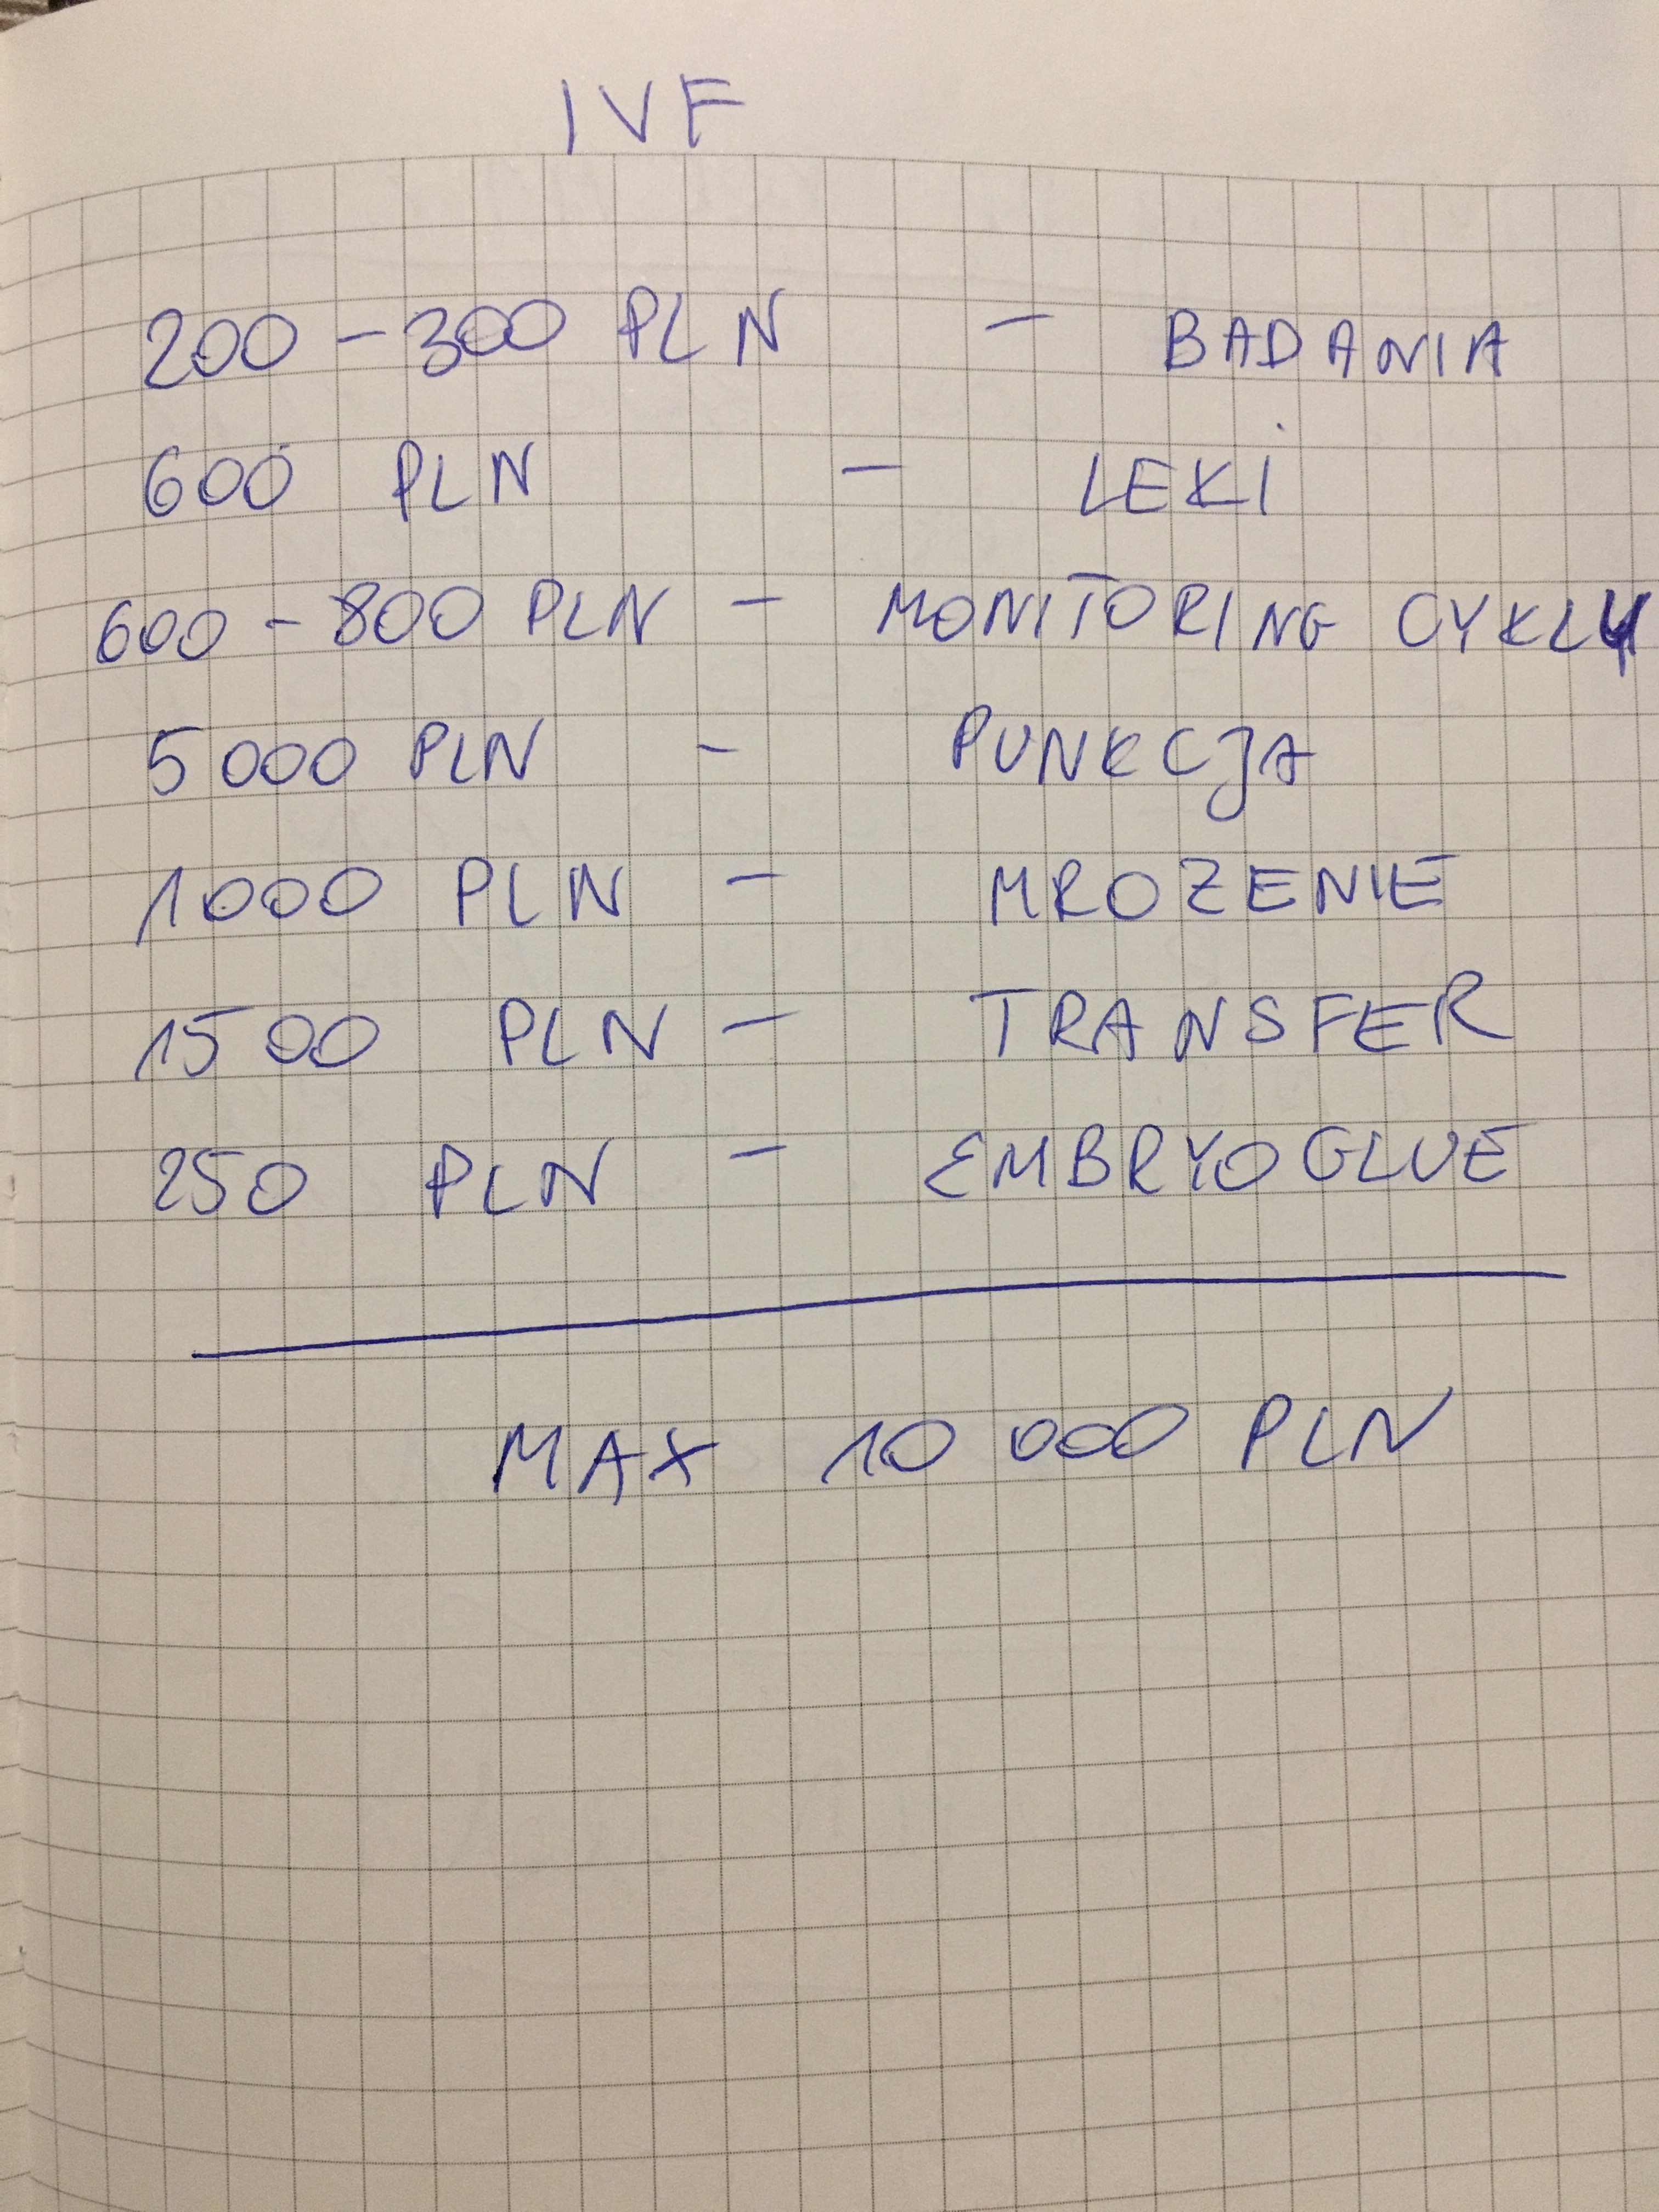 IVF
200 - 300 PLN - BADANIA
600 PLN - LEKI
600 - 800 PLN - MONITORING CYKLU
5000 PLN - PUNKCJA
1000 PLN - MROZENIE
1500 PLN - TRANSFER
250 PLN - EMBRYOGLUE
MAX 10 000 PLN